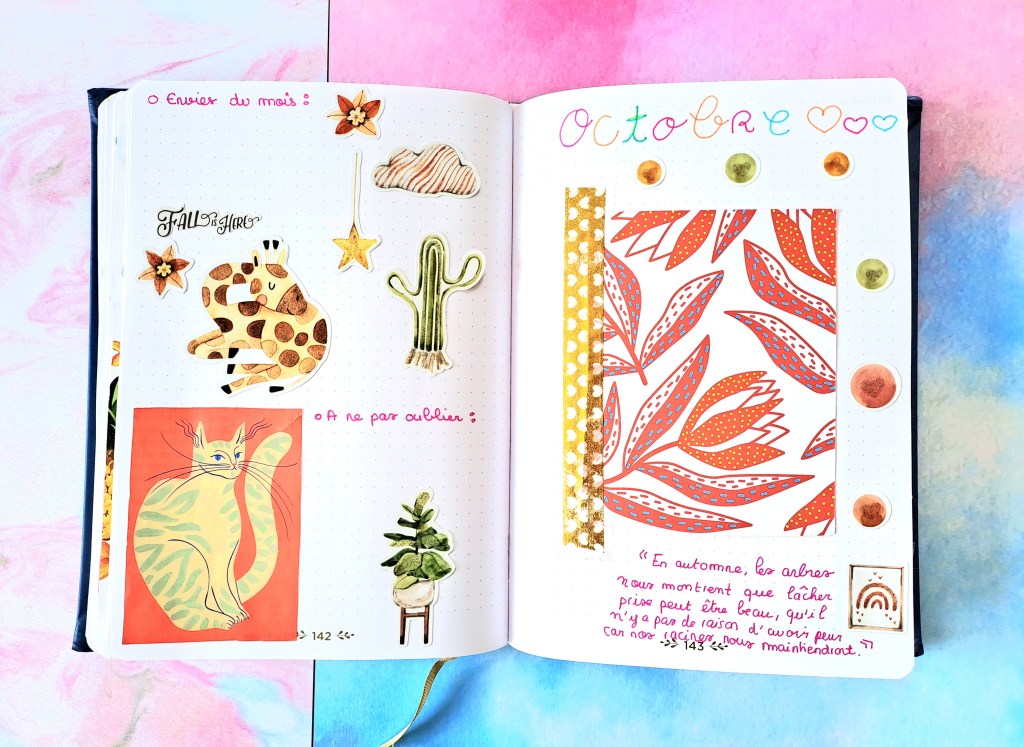 o Envies du mois :
FALL is HERE
o A ne pas oublier :
142
Octobre
"En automne, les arbres
nous montrent que lâcher
prise peut être beau, qu'il
n'y a pas de raison d'avoir peur
car nos racines nous maintiendront."
143